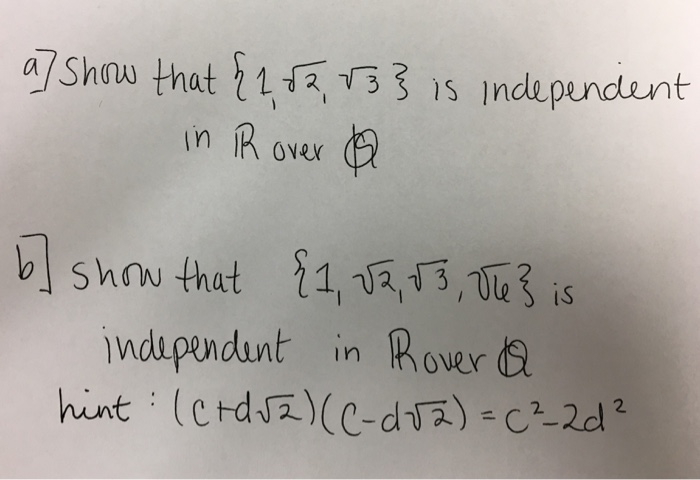 a] Show that {1, √2, √3} is independent
in ℝ over ℚ
b] show that {1, √2, √3, √6} is
independent in ℝ over ℚ
hint : (c+d√2)(c-d√2) = c²-2d²